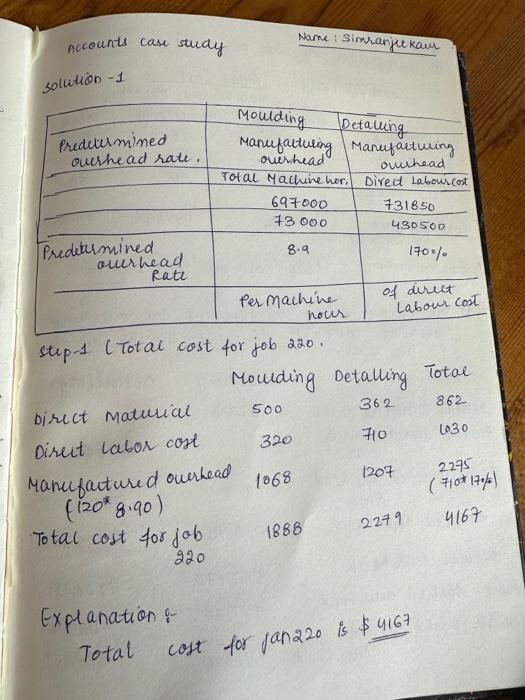 Accounts case study
Name : Simranjeet kaur
Solution -1
Moulding Detailing
Predetermined overhead rate. Manufacturing overhead Manufacturing overhead
Total Machine hor. Direct Labour cost
697000 731850
73000 430500
Predetermined overhead Rate 8.9 170%
Per Machine hour of direct Labour cost
Step-1 (Total cost for job 220.
Moulding Detailing Total
Direct Material 500 362 862
Direct Labor cost 320 710 1030
Manufactured overhead 1068 1207 2275
(120* 8.90) (710* 170%)
Total cost for job 1888 2279 4167
220
Explanation :-
Total cost for jan220 is $ 4167